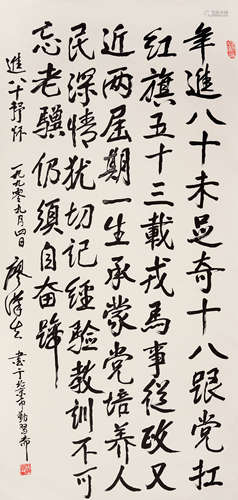 年進八十未足奇十八跟黨扛
红旗五十三載戎馬事從政又
近两屆期一生承蒙党培养人
民深情犹切记經驗教训不可
忘老驥仍須自奋蹄
進八十抒怀 一九九零九月四日 廖漢生 書于北京市